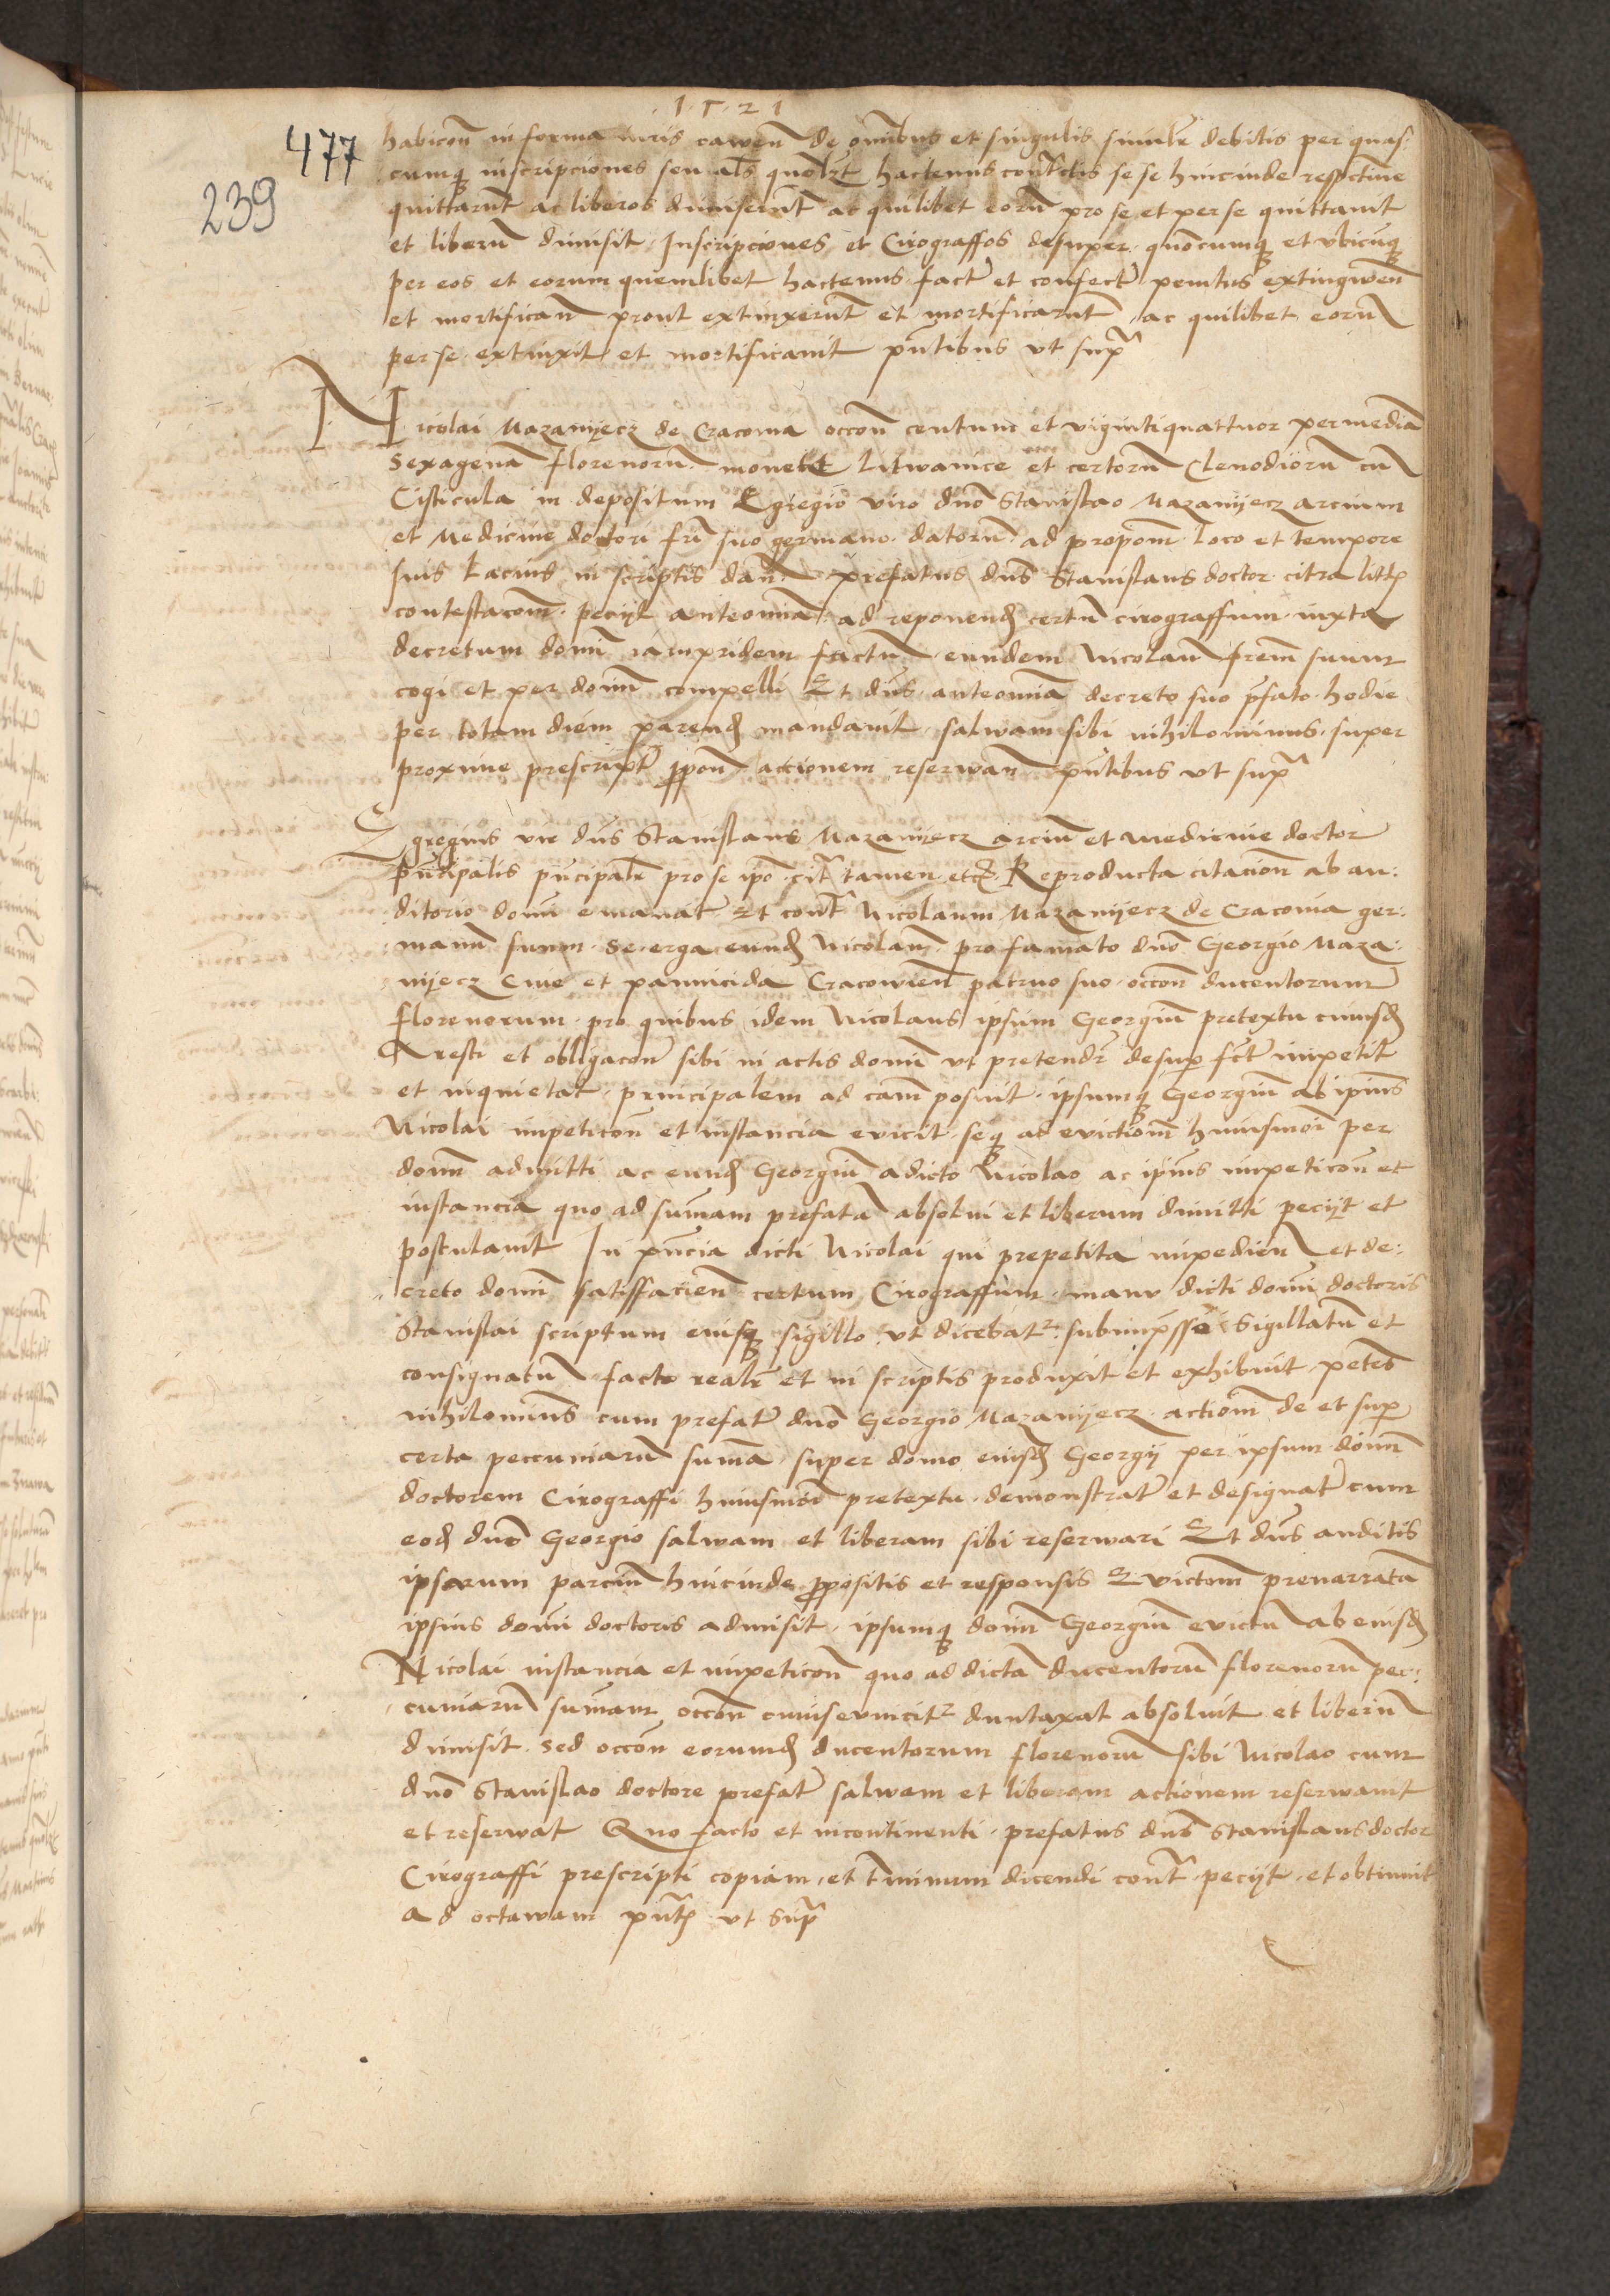 1 5 2 1
477
239
habicoñ in forma iuris caweñ de om̃ibus et singulis simil̃r debitis per quas-
cumq̃ inscripciones seu al̃s quol̃zt hactenus contr̃ctis se se hincinde respectiue
quittarũt ac liberos dimiserũt ac quilibet eorũ pro se et per se quittauit
et liberũ dimisit. Inscripciones et Cirograffos desuper quõcumq̃ et vbicũq̃
per eos et eorum quemlibet hactenus fact̃ et confect̃ penitus extingweñ
et mortificañ prout extinxerũt et mortificarũt ac quilibet eorũ
per se extinxit et mortificauit pñtibus vt supᵃ
Nicolai Mazanÿecz de Cracouia occoñ centum et vigintiquattuor per mediã
sexagenã florenorũ monete Litwanice et certorũ Clenodiorũ cũ
Cisticula in depositum Egregio viro dño Stanislao Mazanÿecz arcium
et Medicine doctori fr̃i suo germano datorũ ad propoñm loco et tempore
suis lacius in scriptis dañ prefatus dñs Stanislaus doctor citra litt̃
contestacoñm peciÿt anteom̃ia ad reponend̃ certũ cirograffum iuxta
decretum domĩ iampridem factũ eundem Nicolaũ fr̃em suum
cogi et per domĩ compelli Et dñs anteom̃ia decreto suo p̃fato hodie
per totam diem parend̃ mandauit salwam sibi nihilominus super
proxime prescript̃ p̃pon̄ accionem reserwañ pñtibus vt supᵃ
Egregius vir dñs Stanislaus Mazanÿecz arciũ et medicine doctor
pñcipalis pñcipal̃r pro se ipo citᵃ tamen etc̃. Reproducta citacioñ ab au-
ditorio domĩ emanat̃ Et contᵃ Nicolaum Mazanÿecz de Cracouia ger-
manũ suum se erga eund̃ Nicolaũ pro famato dño Georgio Maza-
nÿecz Ciue et pannicida Cracowieñ patruo suo occoñ ducentorum
florenorum pro quibus idem Nicolaus ipsum Georgiũ pretextu cuiusd̃
Aresti et obligacoñ sibi in actis domĩ vt pretendr̃ desup fct̃ impetit
et inquietat principalem ad cam̃ posuit ipsumq̃ Georgiũ ab ipĩus
Nicolai impeticoñ et instancia evicit seq̃ ad evictioñm huiusmoĩ per
domĩ admitti ac eund̃ Georgiũ a dicto Nicolao ac ipĩus impeticoñ et
instancia quo ad sum̃am prefatã absolui et liberum dimitti peciÿt et
postulauit In pñcia dicti Nicolai qui prepetita impedieñ et de-
creto domĩ satisffacieñ certum Cirograffum manu dicti domĩ doctoris
Stanislai scriptum eiusq̃ sigillo vt dicebatʳ subimp̃sso sigillatũ et
consignatũ facto real̃r et in scriptis produxit et exhibuit petes̃
nihilomiñs cum prefat̃ dño Georgio Mazanÿecz actioñm de et sup
certa peccuniarũ sum̃a super domo eiusd̃ Georgÿ per ipsum domĩ
doctorem Cirograffi huiusmoĩ pretextu demonstrat̃ et designat̃ cum
eod̃ dño Georgio salwam et liberam sibi reserwari Et dñs auditis
ipsarum parciũ hincinde p̃positis et responsis Evictoñm prenarratã
ipsius domĩ doctoris admisit ipsumq̃ domĩ Georgiũ evictũ ab eiusd̃
Nicolai instancia et impeticoñ quo ad dictã ducentorũ florenorũ pec-
cuniarũ sum̃am occoñ cuius evincitʳ duntaxat absoluit et liberũ
dimisit. Sed occoñ eorumd̃ ducentorum florenorũ sibi Nicolao cum
dño Stanislao doctore prefat̃ salwam et liberam actionem reserwauit
et reserwat Quo facto et incontinenti prefatus dñs Stanislaus doctor
Cirograffi prescripti copiam et t̃minum dicendi contᵃ peciÿt et obtinuit
ad octawam pñt̃ vt supᵃ